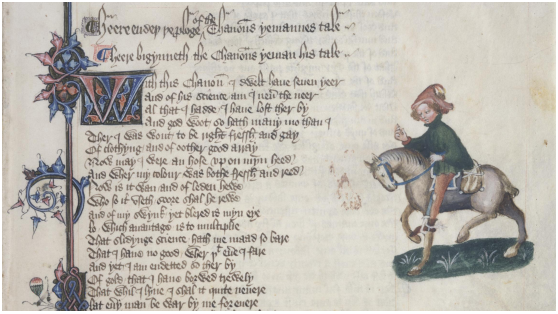 Heere endeth the prologe of the Chanouns yemannes tale
Heere bigynneth the Chanouns yeman his tale
With this Chanoun I dwelt haue seuen yeer
And of his science am I neuer the neer
Al that I hadde I haue lost ther by
And god woot so hath many mo than I
Ther I was wont to be right fressh and gay
Of clothyng and of oother good array
Now may I were an hose vpon myn heed
And wher my colour was bothe fressh and reed
Now is it wan and of leden hewe
Who so it vseth soore shal he rewe
And of my swynk yet blered is myn eye
lo which auantage is to multiplie
That slidynge science hath me maad so bare
That I haue no good wher þt euere I fare
And yet I am endetted so ther by
Of gold that I haue borwed trewely
That whil I lyue I shal it quite neuere
lat euery man be war by me for euere